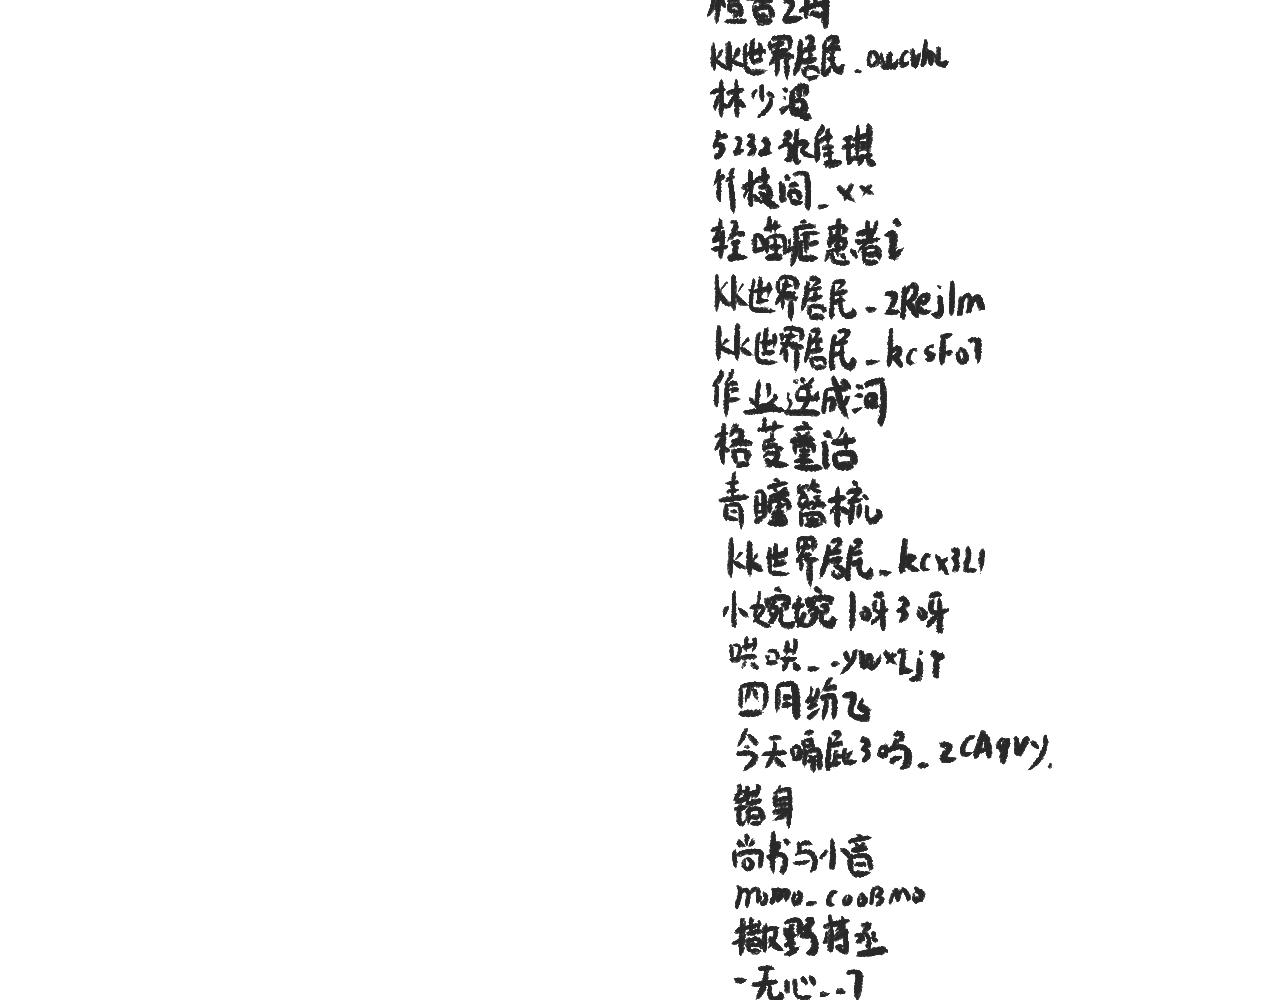 kk世界居民_oucvhl
林少波
5232张佳琪
竹枝间_xx
轻喵症患者i
kk世界居民_2Rejlm
kk世界居民_kcsFo7
作业逆成河
格菱童话
青瞳醫梳
kk世界居民_kcx3L1
小婉婉1呀3呀
哄哄_.ywxzjr
四月纷飞
今天嗝屁3吗_2CAqvy.
错身
尚书与小音
momo_cooBmo
撒野蒋丞
-无心_.7